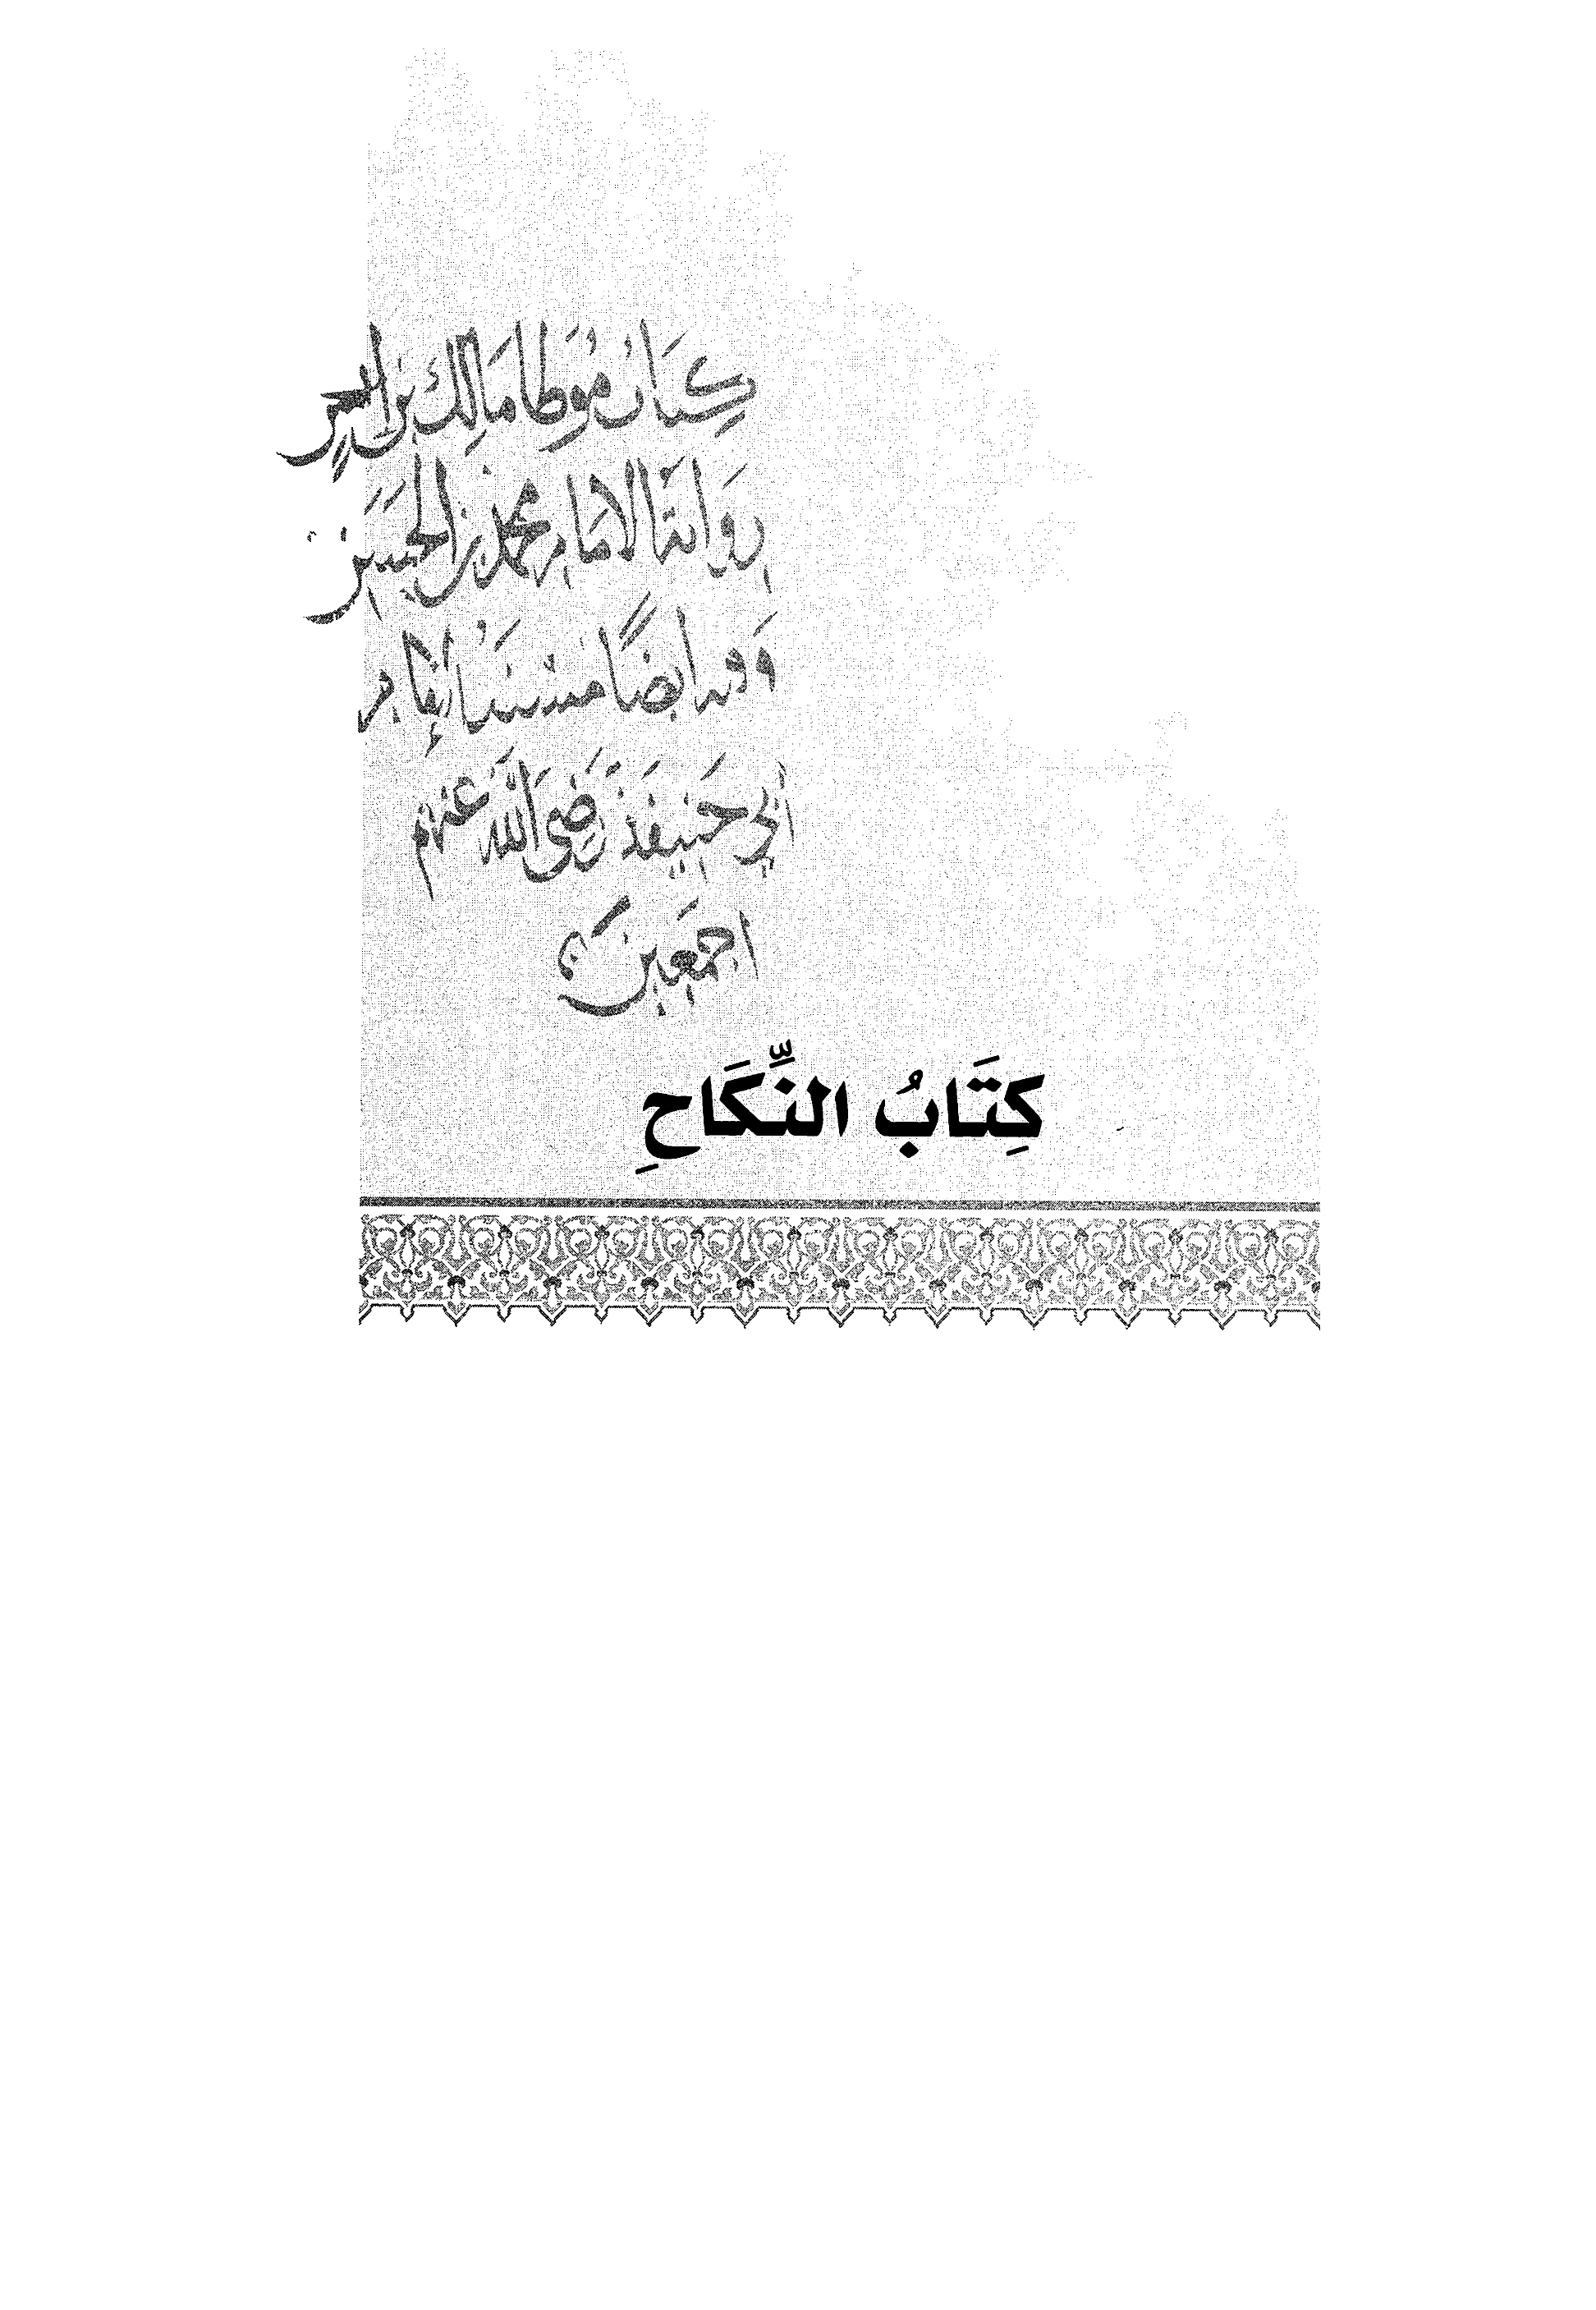 كتاب موطا مالك بن
رواية الامام محمد بن الحسن
وفيه ايضًا مسند الإمام
أبي حنيفة رضي الله عنهم
اجمعين
كِتَابُ النِّكَاحِ